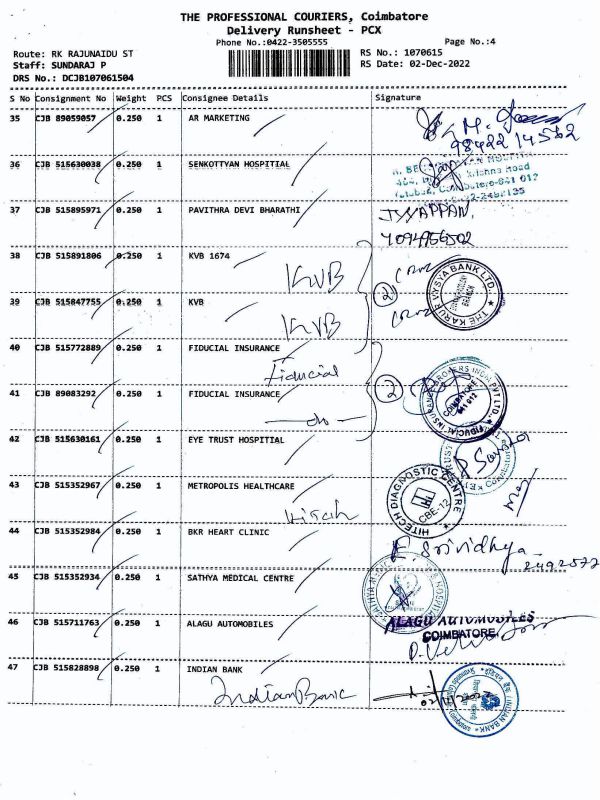 THE PROFESSIONAL COURIERS, Coimbatore
Delivery Runsheet - PCX
Phone No.:0422-3505555 Page No.:4
Route: RK RAJUNAIDU ST RS No.: 1070615
Staff: SUNDARAJ P RS Date: 02-Dec-2022
DRS No.: DCJB107061504
S No Consignment No Weight PCS Consignee Details Signature
35 CJB 89059057 0.250 1 AR MARKETING
98422 14562
36 CJB 515630038 0.250 1 SENKOTTYAN HOSPITIAL
37 CJB 515895971 0.250 1 PAVITHRA DEVI BHARATHI
38 CJB 515891806 0.250 1 KVB 1674
KVB
THE KARUR VYSYA BANK LTD.,
39 CJB 515847755 0.250 1 KVB
KVB
2
40 CJB 515772889 0.250 1 FIDUCIAL INSURANCE
Fiducial
41 CJB 89083292 0.250 1 FIDUCIAL INSURANCE
-do-
2
42 CJB 515630161 0.250 1 EYE TRUST HOSPITIAL
43 CJB 515352967 0.250 1 METROPOLIS HEALTHCARE
Hitech
HITECH DIAGNOSTIC CENTRE
CBE-12
44 CJB 515352984 0.250 1 BKR HEART CLINIC
Srividhya
45 CJB 515352934 0.250 1 SATHYA MEDICAL CENTRE
46 CJB 515711763 0.250 1 ALAGU AUTOMOBILES
ALAGU AUTOMOBILES
COIMBATORE.
47 CJB 515828898 0.250 1 INDIAN BANK
Indian Bank